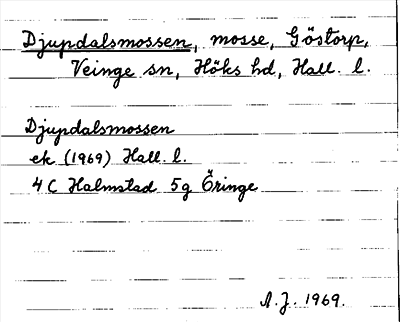 Djupdalsmossen, mosse, Göstorp,
Veinge sn, Höks hd, Hall. l.
Djupdalsmossen
ek (1969) Hall. l.
4 C Halmstad 5g Öringe
A.J. 1969.